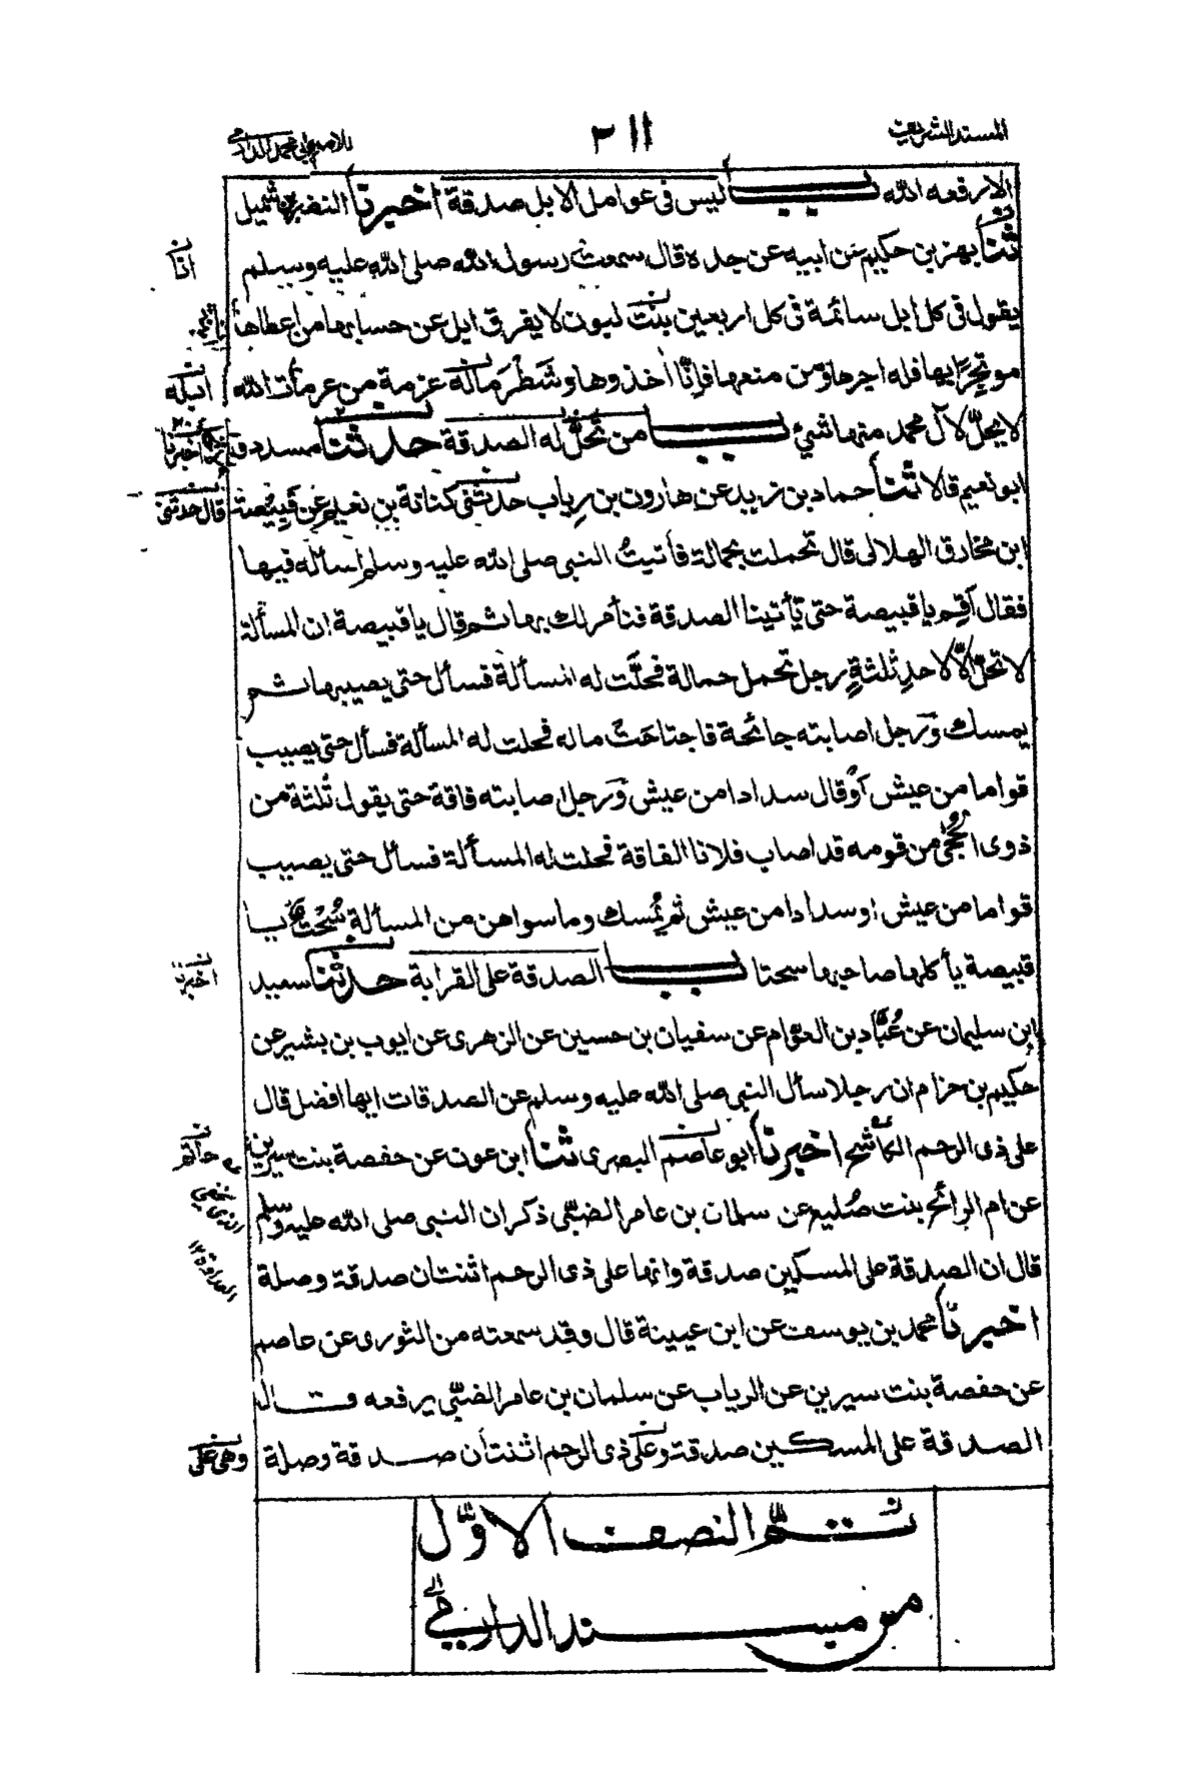 المسند الشريف
٢١١
للامام ابى محمد الدارمى
الا رفعه الله باب ليس فى عوامل الابل صدقة اخبرنا النضر بن شميل
ثنا بهز بن حكيم عن ابيه عن جده قال سمعت رسول الله صلى الله عليه وسلم
يقول فى كل ابل سائمة فى كل اربعين بنت لبون لا يفرق ابل عن حسابها من اعطاها
موتجرا بها فله اجرها ومن منعها فإنا آخذوها وشطر ماله عزمة من عزمات الله
لا يحل لآل محمد منها شئ باب من تحل له الصدقة حدثنا مسدد و
ابو نعيم قالا ثنا حماد بن زيد عن هارون بن رياب حدثنى كنانة بن نعيم عن قبيصة
ابن مخارق الهلالى قال تحملت بحمالة فأتيت النبى صلى الله عليه وسلم اسأله فيها
فقال أقم يا قبيصة حتى تأتينا الصدقة فنأمر لك بها ثم قال يا قبيصة ان المسألة
لا تحل الا لاحد ثلثة رجل تحمل حمالة فحلت له المسألة فسأل حتى يصيبها ثم
يمسك ورجل اصابته جائحة فاجتاحت ماله فحلت له المسألة فسأل حتى يصيب
قواما من عيش أو قال سدادا من عيش ورجل اصابته فاقة حتى يقول ثلثة من
ذوى الحجى من قومه قد اصاب فلانا الفاقة فحلت له المسألة فسأل حتى يصيب
قواما من عيش او سدادا من عيش ثم يمسك وما سواهن من المسألة سحت يا
قبيصة يأكلها صاحبها سحتا باب الصدقة على القرابة حدثنا سعيد
ابن سليمان عن عباد بن العوام عن سفيان بن حسين عن الزهرى عن ايوب بن بشير عن
حكيم بن حزام ان رجلا سأل النبى صلى الله عليه وسلم عن الصدقات ايها افضل قال
على ذى الرحم الكاشح اخبرنا ابو عاصم البصرى ثنا ابن عون عن حفصة بنت سيرين
عن ام الرائح بنت صليع عن سلمان بن عامر الضبى ذكر ان النبى صلى الله عليه وسلم
قال ان الصدقة على المسكين صدقة وانها على ذى الرحم اثنتان صدقة وصلة
اخبرنا محمد بن يوسف عن ابن عيينة قال وقد سمعته من الثورى عن عاصم
عن حفصة بنت سيرين عن الرباب عن سلمان بن عامر الضبى يرفعه قال
الصدقة على المسكين صدقة وعلى ذى الرحم اثنتان صدقة وصلة
انا
ابله
اخبرنا
قال حدثنى
اخبرنا
الذى يخفى
العداوة ١٢
وهى على
تم النصف الاول
من مسند الدارمى